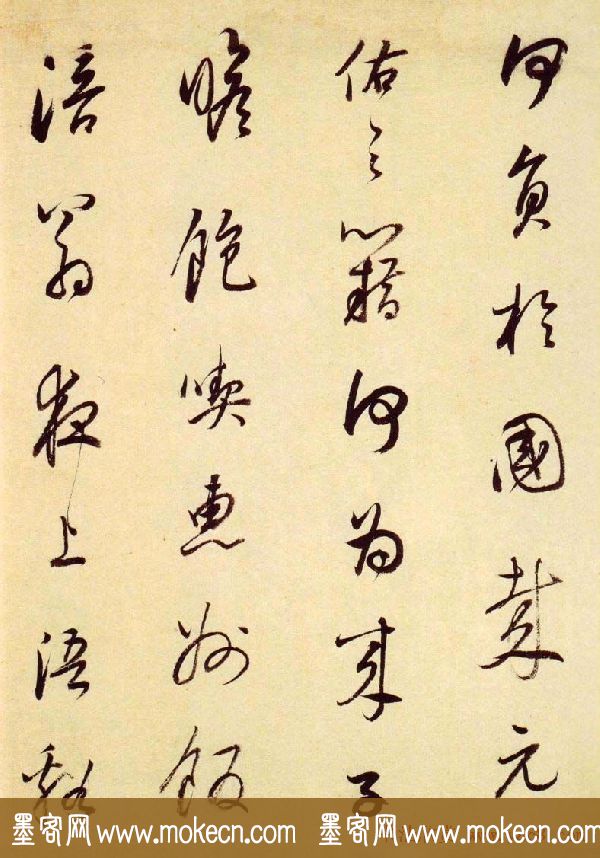 何負於國哉元
佑之籍何為來子
瞻飽喫惠州飯
涪翁夜上浯谿
墨客网www.mokecn.com 墨客网www.mokecn.com